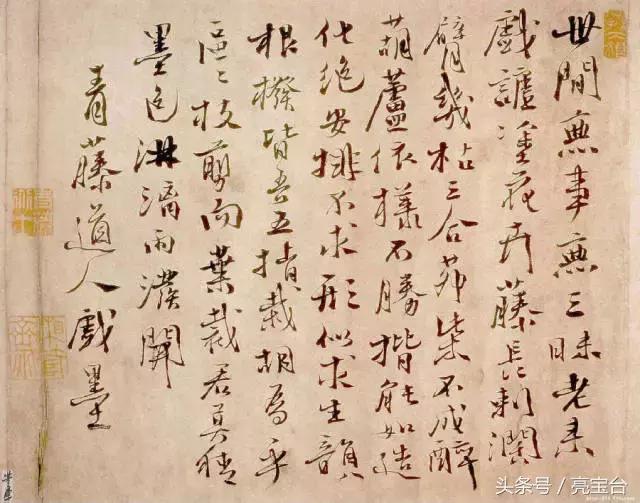 世間無事無三昧老來
戲謔塗花卉藤長刺濶
臂幾枯三合茅柴不成醉
葫蘆依樣不勝揩能如造
化絶安排不求形似求生韻
根撥皆吾五指栽胡爲乎
區〻枝剪而葉裁君莫猜
墨色淋漓雨潑開
青藤道人戲墨
头条号 / 亮宝台